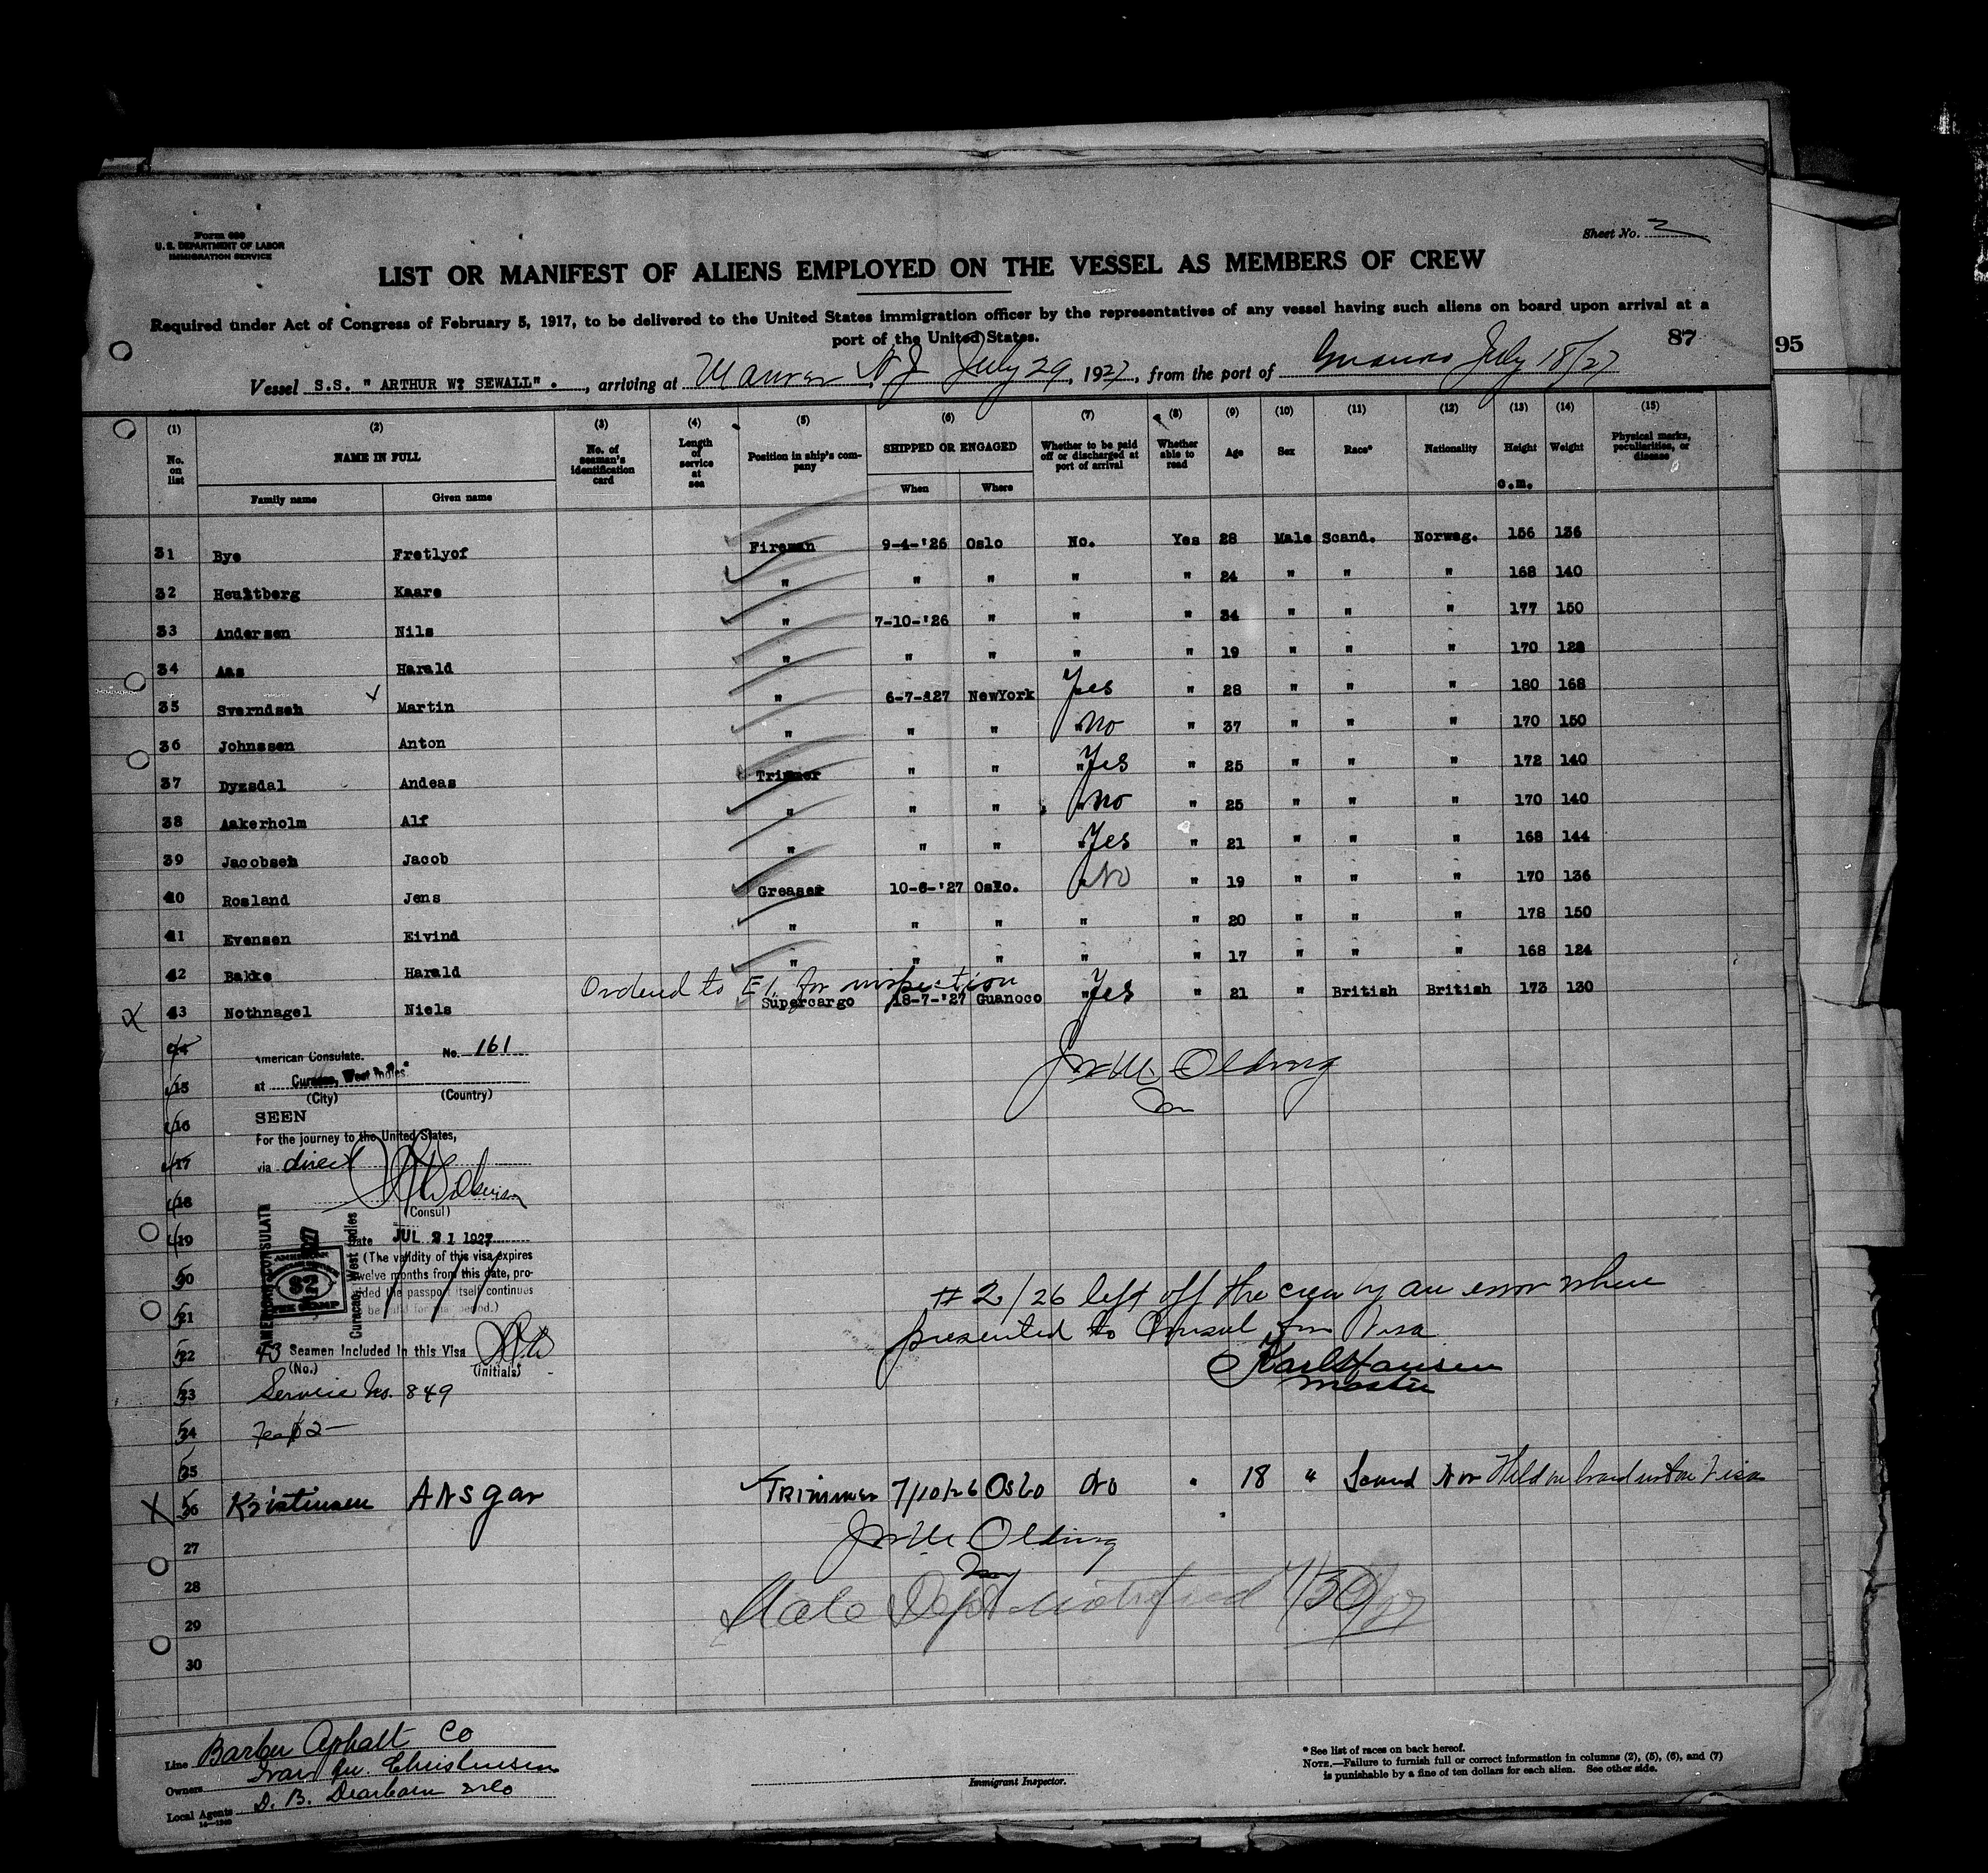 Form 689
U. S. DEPARTMENT OF LABOR
IMMIGRATION SERVICE
Sheet No. 2
LIST OR MANIFEST OF ALIENS EMPLOYED ON THE VESSEL AS MEMBERS OF CREW
Required under Act of Congress of February 5, 1917, to be delivered to the United States immigration officer by the representatives of any vessel having such aliens on board upon arrival at a
port of the United States.
87
95
Vessel S.S. " ARTHUR W? SEWALL". , arriving at Maurer N J July 29, 1927, from the port of Guanoco July 18/27
(1) (2) (3) (4) (5) (6) (7) (8) (9) (10) (11) (12) (13) (14) (15)
No. on list NAME IN FULL No. of seaman's identification card Length of service at sea Position in ship's company SHIPPED OR ENGAGED Whether to be paid off or discharged at port of arrival Whether able to read Age Sex Race* Nationality Height Weight Physical marks, peculiarities, or disease
Family name Given name When Where c.m.
31 Bye Fretlyof Fireman 9-4-'26 Oslo No. Yes 28 Male Scand. Norweg. 156 136
32 Heultberg Kaare " " " " " 24 " " " 168 140
33 Andersen Nils " 7-10-'26 " " " 34 " " " 177 150
34 Aas Harald " " " " " 19 " " " 170 128
35 Sverndseh Martin " 6-7-'27 NewYork Yes " 28 " " " 180 168
36 Johnssen Anton " " " No " 37 " " " 170 150
37 Dyzsdal Andeas Trimmer " " Yes " 25 " " " 172 140
38 Aakerholm Alf " " " No " 25 " " " 170 140
39 Jacobseh Jacob " " " Yes " 21 " " " 168 144
40 Rosland Jens Greaser 10-6-'27 Oslo. No " 19 " " " 170 136
41 Evensen Eivind " " " " " 20 " " " 178 150
42 Bakke Harald " " " " " 17 " " " 168 124
Ordered to E I. for inspection
43 Nothnagel Niels Supercargo 18-7-'27 Guanoco Yes " 21 " British British 173 130
44
American Consulate. No. 161
45
at Curacao, West Indies.
(City) (Country)
46
SEEN
For the journey to the United States,
47
via direct
48
(Consul)
49
Date JUL 21 1927
(The validity of this visa expires
50
twelve months from this date, provided the passport itself continues
51
to be valid for that period.)
AMERICAN CONSULATE
Curacao, West Indies
AMERICAN
$2
FEE STAMP
52
43 Seamen Included in this Visa
(No.) (Initials)
53
Service No. 849
54
Fee $2—
55
Olding
# 2/26 left off the crew by an error when
presented to Consul for Visa
Karl Hansen
Master
56 Kristensen Ansgar Trimmer 7/10/26 Oslo No " 18 " Scand Nor Held on board without Visa
Olding
27
28
State Dept notified 7/30/27
29
30
Line Barber Asphalt Co
Owners Ivar An. Christensen
Local Agents D. B. Dearborn & Co
14—1240
Immigrant Inspector.
* See list of races on back hereof.
NOTE.—Failure to furnish full or correct information in columns (2), (5), (6), and (7)
is punishable by a fine of ten dollars for each alien. See other side.